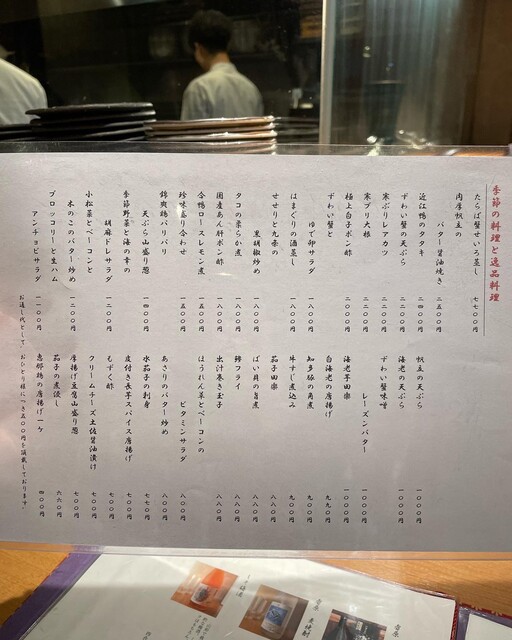 季節の料理と逸品料理
たらば蟹せいろ蒸し 七七〇〇円
肉厚帆立の
バター醤油焼き 二五〇〇円
近江鴨のタタキ 二四〇〇円
ずわい蟹の天ぷら 二二〇〇円
寒ぶりレアカツ 二二〇〇円
寒ブリ大根 二二〇〇円
極上白子ポン酢 二〇〇〇円
ずわい蟹と
ゆで卵サラダ 一八〇〇円
はまぐりの酒蒸し 一八〇〇円
せせりと九条の
黒胡椒炒め 一八〇〇円
タコの柔らか煮 一八〇〇円
国産あん肝ポン酢 一八〇〇円
合鴨ロースレモン煮 一五〇〇円
珍味盛り合わせ 一五〇〇円
錦爽鶏パリパリ
天ぷら山盛り葱 一四〇〇円
季節野菜と海の幸の
胡麻ドレサラダ 一二〇〇円
小松菜とベーコンと
木のこのバター炒め 一一〇〇円
ブロッコリーと生ハム
アンチョビサラダ 一一〇〇円
帆立の天ぷら 一〇〇〇円
海老の天ぷら 一〇〇〇円
ずわい蟹味噌
レーズンバター 一〇〇〇円
海老芋田楽 一〇〇〇円
白海老の唐揚げ 九九〇円
知多豚の角煮 九〇〇円
牛すじ煮込み 九〇〇円
茄子田楽 八八〇円
ばい貝の旨煮 八八〇円
鯵フライ 八八〇円
出汁巻き玉子 八八〇円
ほうれん菜とベーコンの
ビタミンサラダ 八〇〇円
あさりのバター炒め 八〇〇円
水茄子の刺身 七七〇円
皮付き長芋スパイス唐揚げ 七七〇円
もずく酢 七〇〇円
クリームチーズ土佐醤油漬け 七〇〇円
厚揚げ豆腐山盛り葱 七〇〇円
茄子の煮浸し 六六〇円
恵那鶏の唐揚げ一ヶ 四〇〇円
お通し代として、おひとり様につき五〇〇円を頂戴しております。